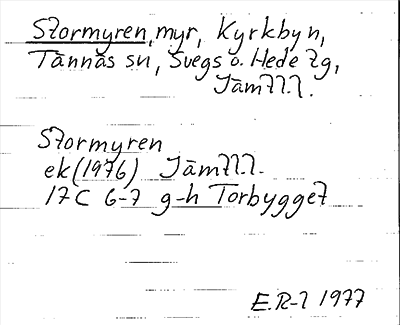 Stormyren, myr, Kyrkbyn,
Tännäs sn, Svegs o. Hede tg,
Jämtl.l.
Stormyren
ek (1976) Jämtl.l.
17C 6-7 g-h Torbygget
E.R-l 1977